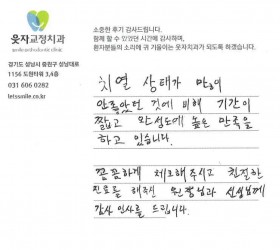 소중한 후기 감사드립니다.
함께 할 수 있었던 시간에 감사하며,
환자분들의 소리에 귀 기울이는 웃자교정치과가 되도록 하겠습니다.
웃자교정치과
경기도 성남시 중원구 성남대로
1156 도원타워 3,4층
031 606 0282
letsunile.co.kr
치열 상태가 많이
안좋았던 것에 비해 기간이
짧고 완성도에 높은 만족을
하고 있습니다.
꼼꼼하게 체크해주시고 친절한
진료를 해주신 원장님과 선생님께
감사 인사를 드립니다.